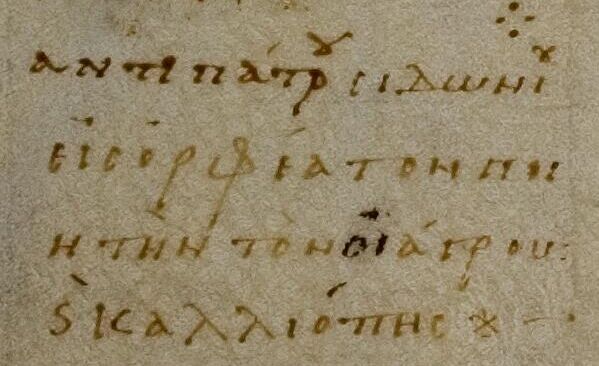 ἀντιπάτρου σιδωνίου
εἰς ὀρφέα τὸν ποι
ητὴν τὸν οἰάγρου
ϗ καλλιόπης